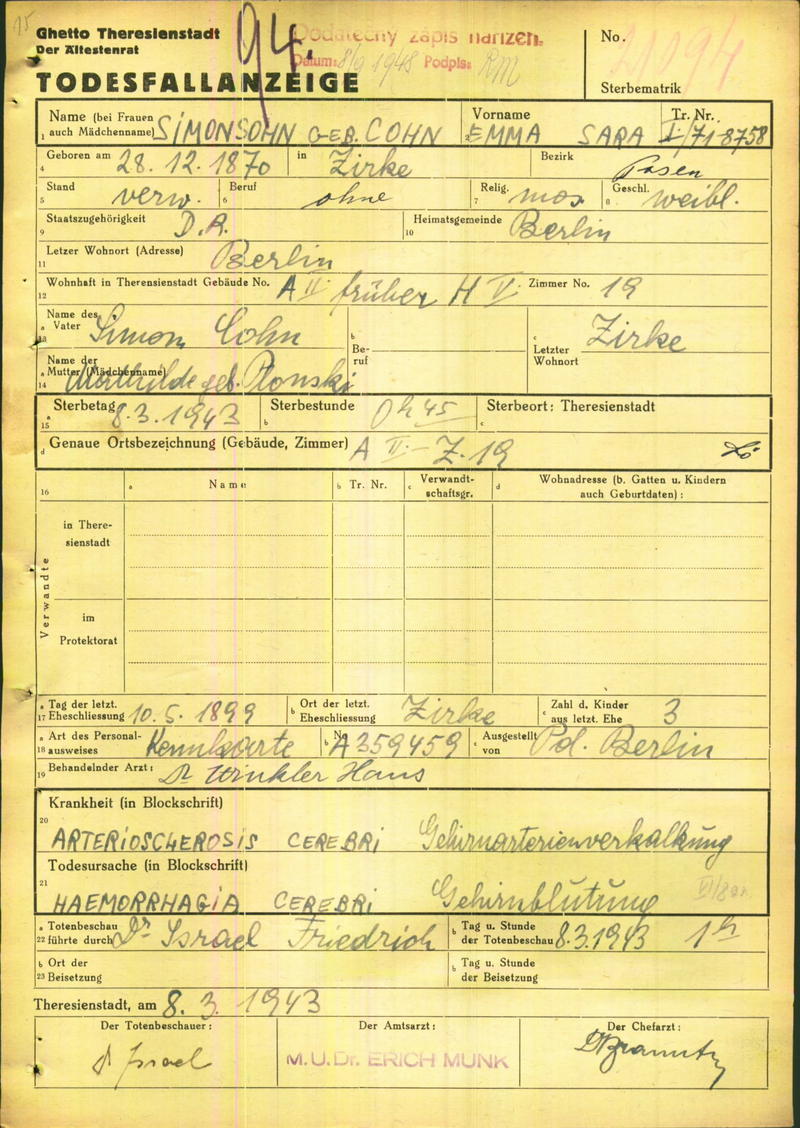 15
Ghetto Theresienstadt
Der Ältestenrat
94.
Dodatečný zápis nařízen.
Datum: 8/9 1948 Podpis: RM
No. 21094
Sterbematrik
TODESFALLANZEIGE
Name (bei Frauen auch Mädchenname) SIMONSOHN GEB. COHN Vorname EMMA SARA Tr. Nr. I/71-8758
1 2
Geboren am 28. 12. 1870 in Zirke Bezirk Posen
4
Stand verw. Beruf ohne Relig. mos. Geschl. weibl.
5 6 7 8
Staatszugehörigkeit D.R. Heimatsgemeinde Berlin
9 10
Letzer Wohnort (Adresse) Berlin
11
Wohnhaft in Theresienstadt Gebäude No. A II früher H V Zimmer No. 19
12
Name des Vater Simon Cohn Be-ruf Letzter Wohnort Zirke
a 13 b c
Name der Mutter (Mädchenname) Mathilde geb. Plonski
a 14
Sterbetag 8.3.1943 Sterbestunde 0h 45 Sterbeort: Theresienstadt
a 15 b c
Genaue Ortsbezeichnung (Gebäude, Zimmer) A II - Z. 19
d
16 a Name b Tr. Nr. c Verwandt-schaftsgr. d Wohnadresse (b. Gatten u. Kindern auch Geburtdaten):
Verwandte
in There-sienstadt
im Protektorat
a 17 Tag der letzt. Eheschliessung 10.5.1899 b Ort der letzt. Eheschliessung Zirke c Zahl d. Kinder aus letzt. Ehe 3
a 18 Art des Personal-ausweises Kennkarte b No. A 359459 c Ausgestellt von Pd. Berlin
19 Behandelnder Arzt: Dr Winkler Hans
Krankheit (in Blockschrift)
20
ARTERIOSCHEROSIS CEREBRI Gehirnarterienverkalkung
Todesursache (in Blockschrift)
21
HAEMORRHAGIA CEREBRI Gehirnblutung
a 22 Totenbeschau führte durch Dr Israel Friedrich b Tag u. Stunde der Totenbeschau 8.3.1943 1h
b 23 Ort der Beisetzung b Tag u. Stunde der Beisetzung
Theresienstadt, am 8. 3. 1943
Der Totenbeschauer: Der Amtsarzt: Der Chefarzt:
Dr Israel M.U.Dr. ERICH MUNK